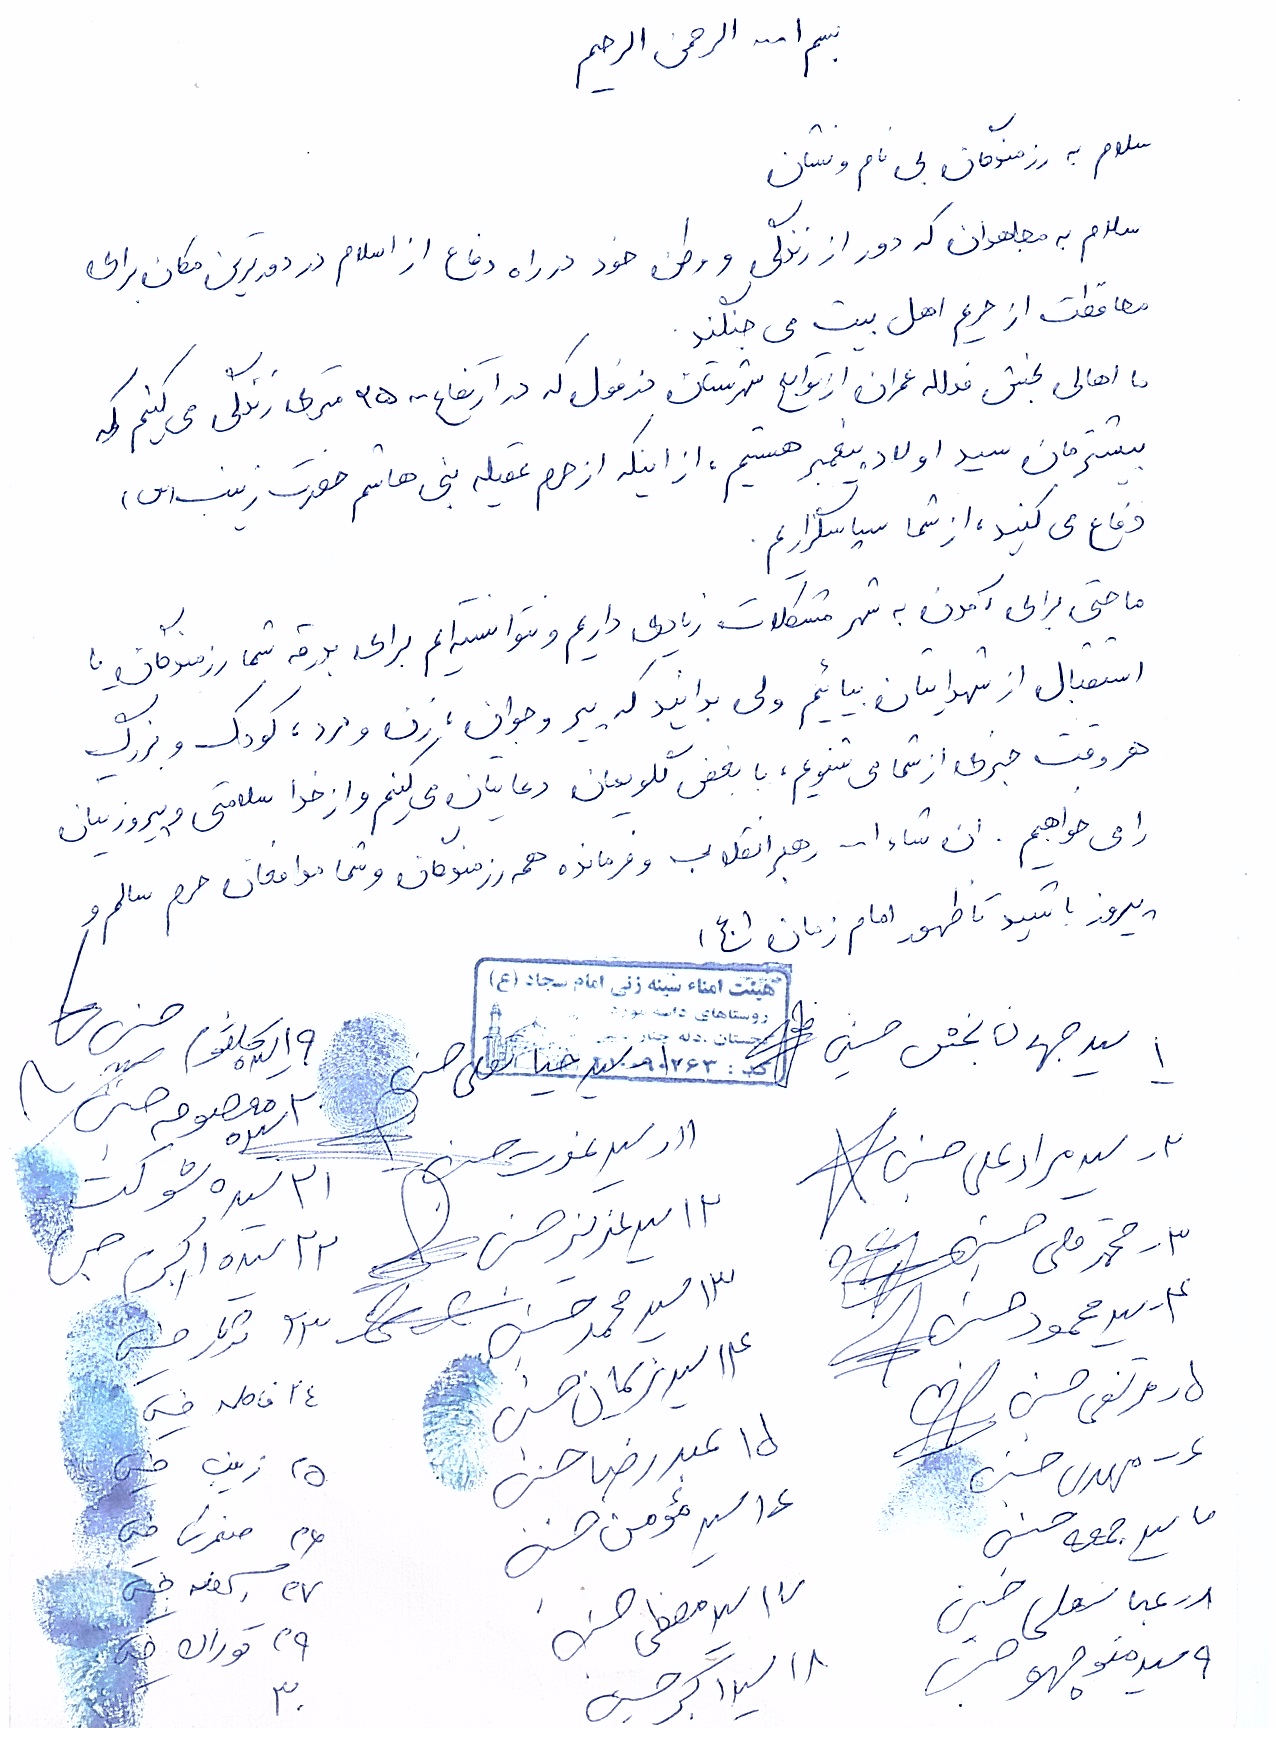 بسم الله الرحمن الرحیم
سلام به رزمندگان بی نام و نشان
سلام به مجاهدان که دور از زندگی و وطن خود در راه دفاع از اسلام در دورترین مکان برای
محافظت از حریم اهل بیت می جنگند.
ما اهالی بخش عمران از توابع شهرستان دزفول که در ارتفاع متری زندگی می کنیم که
بیشترمان سید اولاد پیغمبر هستیم، از اینکه از حرم عقیله بنی هاشم حضرت زینب (س)
دفاع می کنید، از شما سپاسگزاریم.
ما حتی برای آمدن به شهر مشکلات زیادی داریم و نتوانسته ایم برای بدرقه شما رزمندگان یا
استقبال از شهدایتان بیائیم ولی بدانید که پیر و جوان، زن و مرد، کودک و بزرگ
هر وقت خبری از شما می شنویم، با بغض گلویمان دعایتان می کنیم و از خدا سلامتی و پیروزیتان
را می خواهیم. ان شاء ا... رهبر انقلاب و فرمانده همه رزمندگان و شما مدافعان حرم سالم و
پیروز باشید تا ظهور امام زمان (عج)
هیئت امناء سینه زنی امام سجاد (ع)
روستاهای
کد: ۹۰۲۶۳
۱ سید جهانبخش حسینی
۲- سید مرادعلی حسینی
۳- محمدقلی حسینی
۴- سید محمود حسینی
۵- مرتضی حسینی
۶- مهدی حسینی
۷ سید جمعه حسینی
۸- عباسعلی حسینی
۹ سید منوچهر حسینی
۱۰- سید حسینی
۱۱- سید عزت حسینی
۱۲ سید عزیز حسینی
۱۳ سید محمد حسینی
۱۴ سید نریمان حسینی
۱۵ عبدرضا حسینی
۱۶ سید مؤمن حسینی
۱۷ سید مصطفی حسینی
۱۸ سید اکبر حسینی
۱۹ سیده حسینی
۲۰ سیده معصومه حسینی
۲۱ سیده شوکت
۲۲ سیده
۲۳ حسینی
۲۴ فاطمه حسینی
۲۵ زینب حسینی
۲۶ حسینی
۲۷ حسینی
۲۹ توران حسینی
۳۰